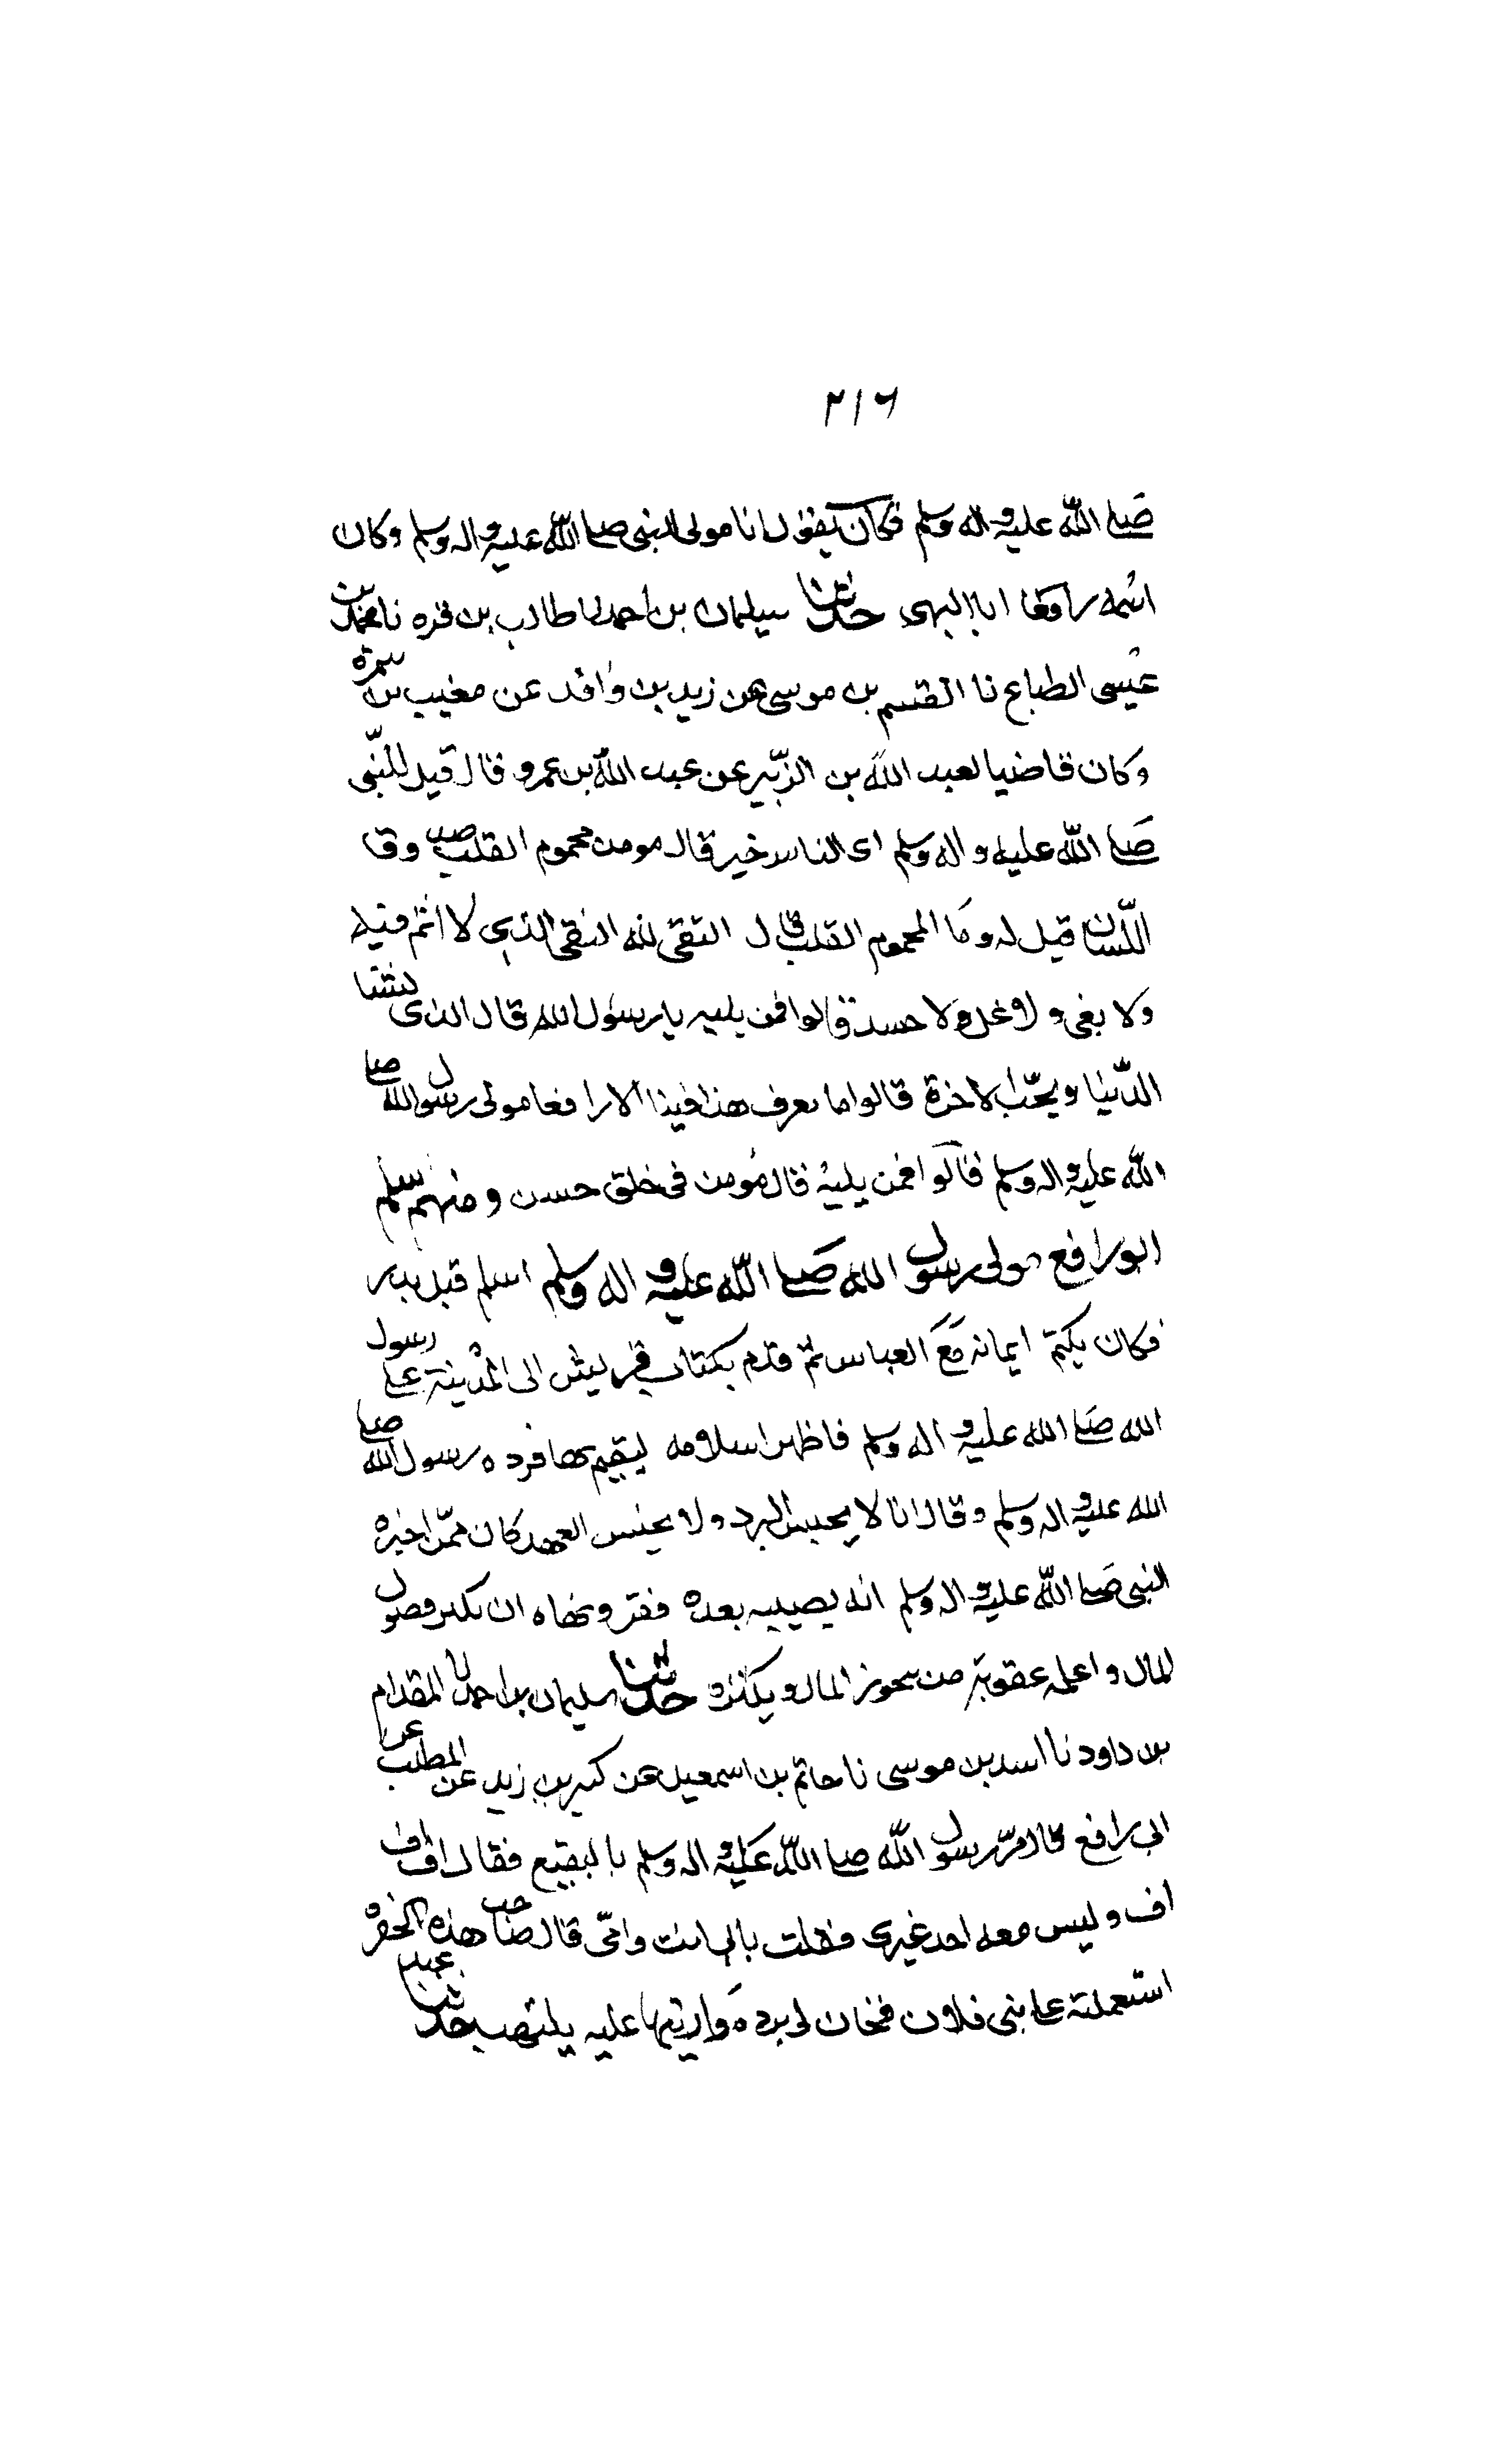 ٢١٦
صلى الله عليه واله وسلم فكان يقول انا مولى النبى صلى الله عليه واله وسلم وكان
اسمه رافعا ابا البهى حدثنا سليمان بن احمد نا طالب بن قره نا محمد بن
عيسى الطباع نا القسم بن موسى عن زيد بن واقد عن مغيب بن سمرة
وكان قاضيا لعبد الله بن الزبير عن عبد الله بن عمرو قال قيل للنبى
صلى الله عليه واله وسلم اى الناس خير قال مومن محموم القلب صد وق
اللسان قيل له وما المحموم القلب قال التقى لله النقى الذى لا اثم فيه
ولا بغى ولا غل ولا حسد قالوا فمن يليه يا رسول الله قال الذى يشنا
الدنيا ويحب الاخرة قالوا ما نعرف هذا فينا الا رافعا مولى رسول الله صلى
الله عليه واله وسلم قالوا فمن يليه قال مومن فى خلق حسن ومنهم سلم
ابو رافع مولى رسول الله صلى الله عليه واله وسلم اسلم قبل بدر
فكان يكتم ايمانه مع العباس ثم قدم بكتاب قريش الى المدينة على رسول
الله صلى الله عليه واله وسلم فاظهر اسلامه ليقيم بها فرده رسول الله صلى
الله عليه واله وسلم وقال انا لا يحبس البرد ولا يخيس العهد كان ممن اخبره
النبى صلى الله عليه واله وسلم انه يصيبه بعده فقر ونهاه ان يكنز فضول
المال واعلمه عقوبة من يحوز المال ويكنزه حدثنا سليمان بن احمد نا المقدام
بن داود نا اسد بن موسى نا حاتم بن اسمعيل عن كثير بن زيد عن المطلب عن
ابى رافع قال مر رسول الله صلى الله عليه واله وسلم بالبقيع فقال اف اف
اف وليس معه احد غيرى فقلت بابى انت وامى قال صاحب هذه الحفرة
استعملته على بنى فلان فخان لى بردة واريتها عليه يلتهب حدثنا عبد